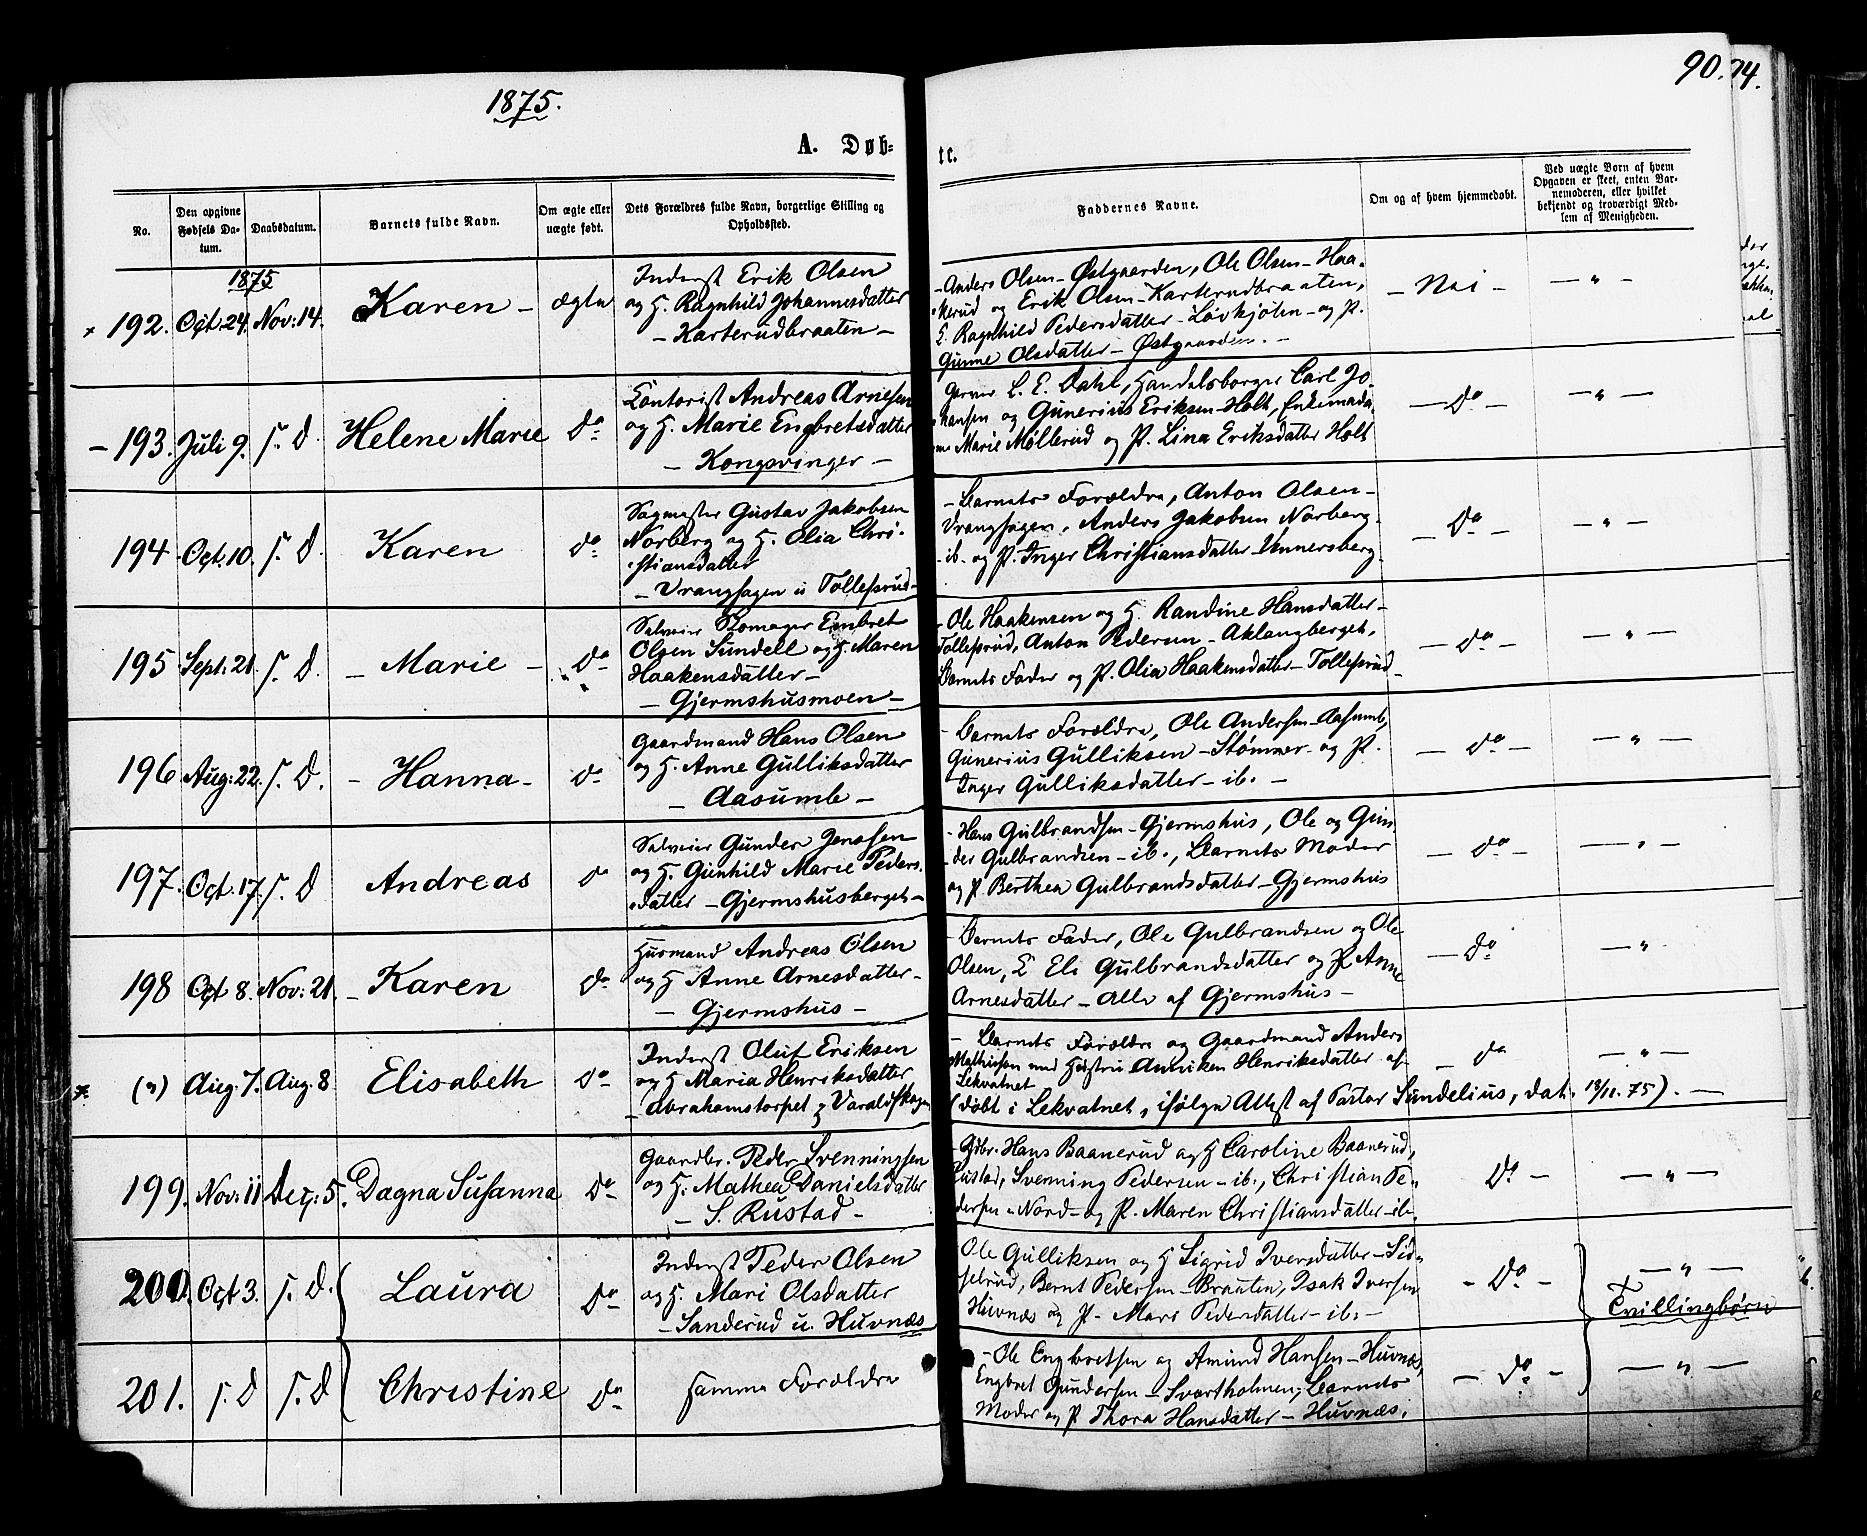 1875.
90.
94.
A. Døb-
te.
No.
Den opgivne
Fødsels Da-
tum.
Daabsdatum.
Barnets fulde Navn.
Om ægte eller
uægte født.
Dets Forældres fulde Navn, borgerlige Stilling og
Opholdssted.
Faddernes Navne.
Om og af hvem hjemmedøbt.
Ved uægte Børn af hvem
Opgaven er skeet, enten Bar-
nemoderen, eller hvilket
bekjendt og troværdigt Med-
lem af Menigheden.
1875
192. Oct. 24. Nov: 14. Karen – ægte
Inderst Erik Olsen
og H. Ragnhild Johannesdatter
– Karterudbraaten –
– Anders Olsen – Østgaarden, Ole Olsen – Haa-
kerud og Erik Olsen – Karterudbraaten,
E. Ragnhild Pedersdatter – Løvhjølen – og P.
Gunne Olsdatter – Østgaarden. –
– Nei – – " –
– 193. Juli 9. s. D. Helene Marie do
Contorist Andreas Arnesen
og H. Marie Engbretsdatter
– Kongsvinger –
Garver L. E. Dahl, Handelsborger Carl Jo-
hansen og Gunerius Eriksen – Holt, Enkemada-
me Marie Møllerud og P. Lina Eriksdatter Holt
– do – – " –
194. Oct. 10. s. D. Karen do
Sagmester Gustav Jakobsen
Norberg og H. Olia Chri-
stiansdatter
– Vrangsagen u Tollefsrud –
– Barnets Forældre, Anton Olsen –
Vrangsagen, Anders Jakobsen Norberg
– ib. og P. Inger Christiansdatter – Unnersberg
– do – – " –
195 Sept. 21. s. D. – Marie – do
Selveier Skomager Embret
Olsen Sundell og H. Maren
Haakensdatter –
– Gjermshusmoen –
– Ole Haakensen og H. Randine Hansdatter –
Tollefsrud, Anton Pedersen – Aklangberget,
Barnets Fader og P. Olia Haakensdatter – Tollefsrud –
– do – – " –
196 Aug: 22. s. D. – Hanna – do
Gaardmand Hans Olsen
og H. Anne Gulliksdatter
– Aasumb –
– Barnets Forældre, Ole Andersen – Aasumb,
Gunerius Gulliksen – Stømner – og P.
Inger Gulliksdatter – ib. –
– do – – " –
197. Oct. 17. s. D Andreas do
Selveier Gunder Jenssen
og H. Gunhild Marie Peders-
datter – Gjermshusberget –
– Hans Gulbrandsen – Gjermshus, Ole og Gun-
der Gulbrandsen – ib., Barnets Moder
og P. Berthea Gulbrandsdatter – Gjermshus
– do – – " –
198 Oct 8. Nov: 21. – Karen do
Husmand Andreas Olsen
og H Anne Arnesdatter –
– Gjermshus –
– Barnets Fader, Ole Gulbrandsen og Ole
Olsen, E Eli Gulbrandsdatter og P. Anne
Arnesdatter – Alle af Gjermshus –
– do – "
Aug: 7. Aug: 8 Elisabeth do
Inderst Oluf Eriksen
og H Maria Henriksdatter
– Abrahamstorpet Varaldskogen
– Barnets Forældre og Gaardmand Anders
Mathiesen med Hustru Anniken Henriksdatter af
Lekvatnet
(døbt i Lekvatnet, ifølge Attest af Pastor Sundelius, dat. 18/11. 75). –
– do – " –
199. Nov: 11 Dec: 5. Dagna Susanna do
Gaardbr. Peder Svenningsen
og H. Mathea Danielsdatter
– S. Rustad –
– Gdbr. Hans Baanerud og H Caroline Baanerud,
Rustad, Svenning Pedersen – ib., Christian Pe-
dersen – Nord – og P. Maren Christiansdatter – ib.
do – – " –
200. Oct 3. s. D. Laura do
Inderst Peder Olsen
og H. Mari Olsdatter
– Sanderud u. Huvnæs
Ole Gulliksen og H Sigrid Iversdatter – Sid-
selrud, Bernt Pedersen – Braaten, Isak Iversen
Huvnæs og P. Mari Pedersdatter – ib. –
– do – – " –
Tvillingbørn
201. s. D s. D Christine do
samme Forældre
– Ole Engbretsen og Amund Hansen – Huvnæs,
Engbret Gundersen – Svartholmen, Barnets
Moder og P. Thora Hansdatter – Huvnæs.
– do – – " –